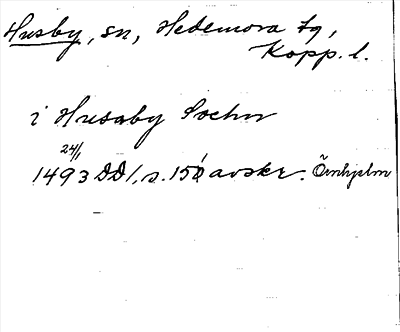 Husby, sn, Hedemora tg,
Kopp. l.
i Husaby Sochn
24/1
1493 DD1, s. 150 avskr. Örnhjelm